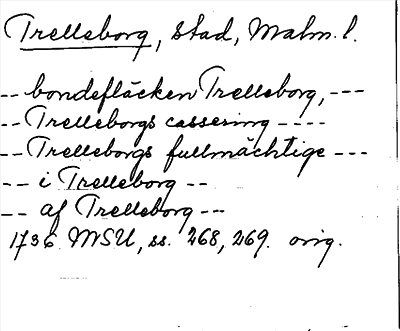 Trelleborg, stad, Malm. l.
-- bondefläcken Trelleborg, ---
-- Trelleborgs cassering ----
-- Trelleborgs fullmächtige ---
-- i Trelleborg --
-- af Trelleborg ---
1736 MSU, ss. 268, 269. orig.